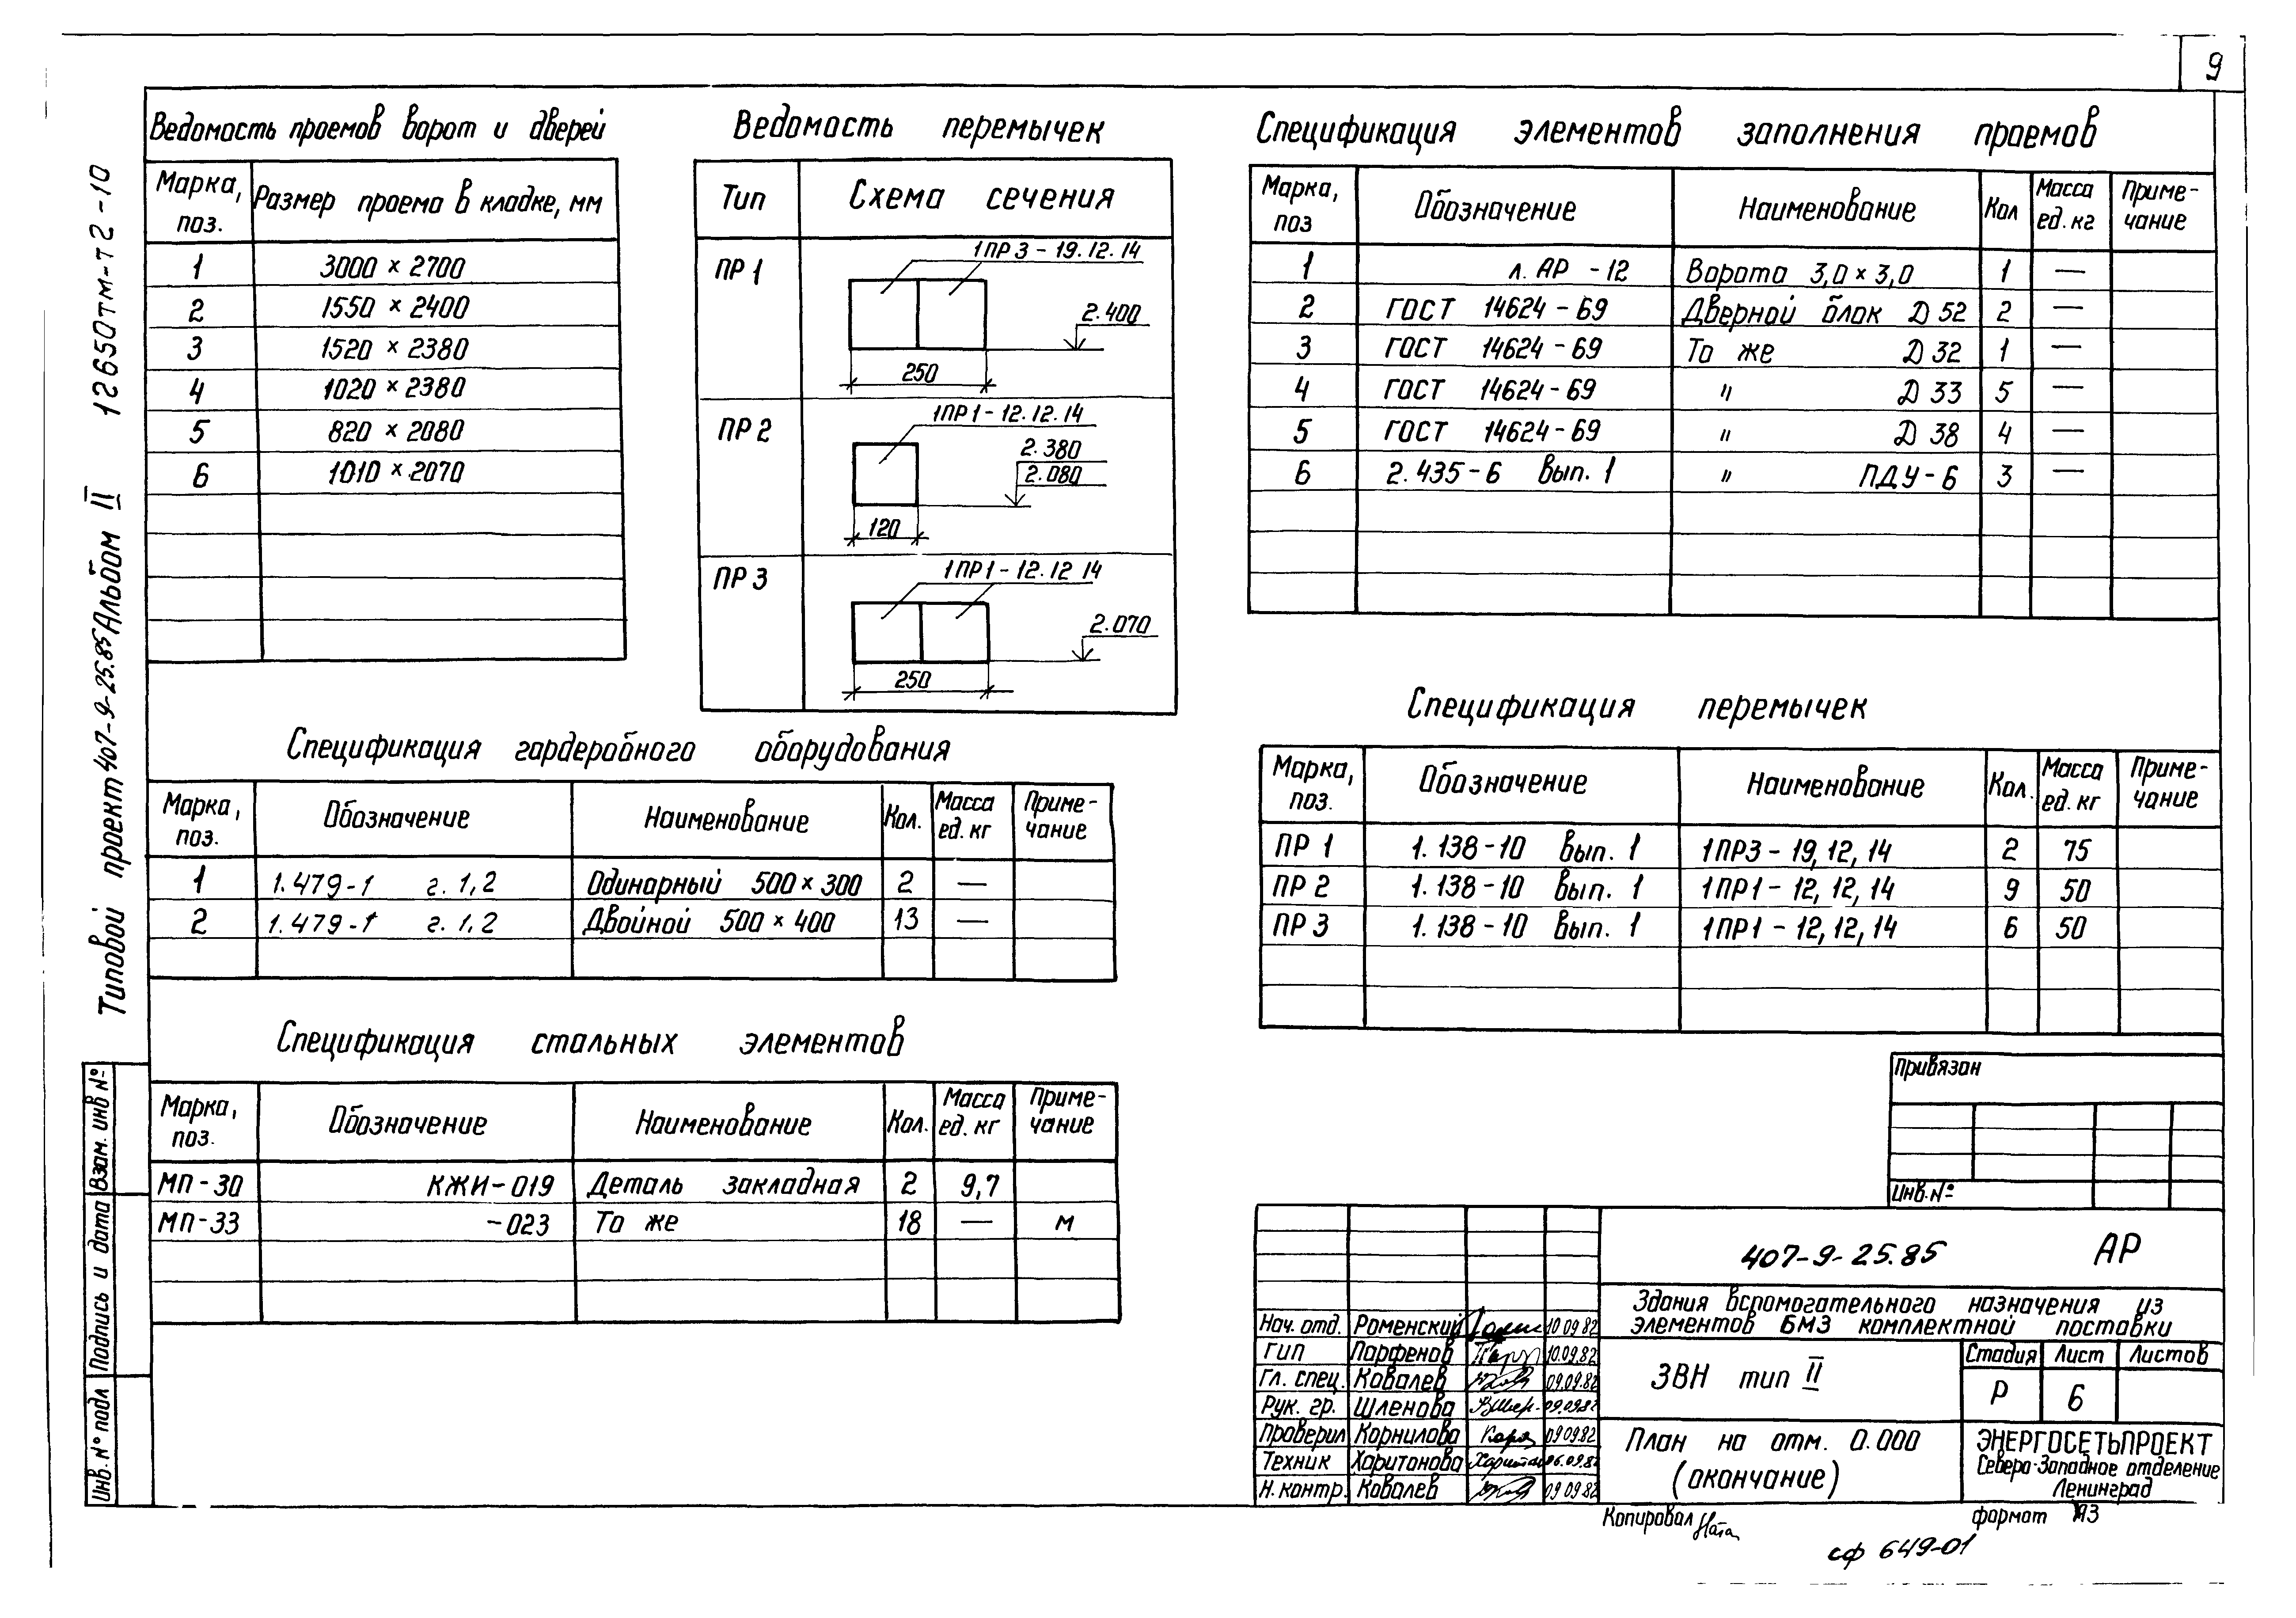 9
12650тм-т2-10
Типовой проект 407-9-25.85 Альбом II
Ведомость проемов ворот и дверей
Марка, поз. Размер проема в кладке, мм
1 3000 × 2700
2 1550 × 2400
3 1520 × 2380
4 1020 × 2380
5 820 × 2080
6 1010 × 2070
Ведомость перемычек
Тип Схема сечения
ПР 1 1ПР 3 - 19. 12. 14
2.400
250
ПР 2 1ПР 1 - 12. 12. 14
2.380
2.080
120
ПР 3 1ПР 1 - 12. 12 14
2.070
250
Спецификация элементов заполнения проемов
Марка, поз Обозначение Наименование Кол Масса ед. кг Приме-чание
1 л. АР - 12 Ворота 3,0 × 3,0 1 —
2 ГОСТ 14624 - 69 Дверной блок Д 52 2 —
3 ГОСТ 14624 - 69 То же Д 32 1 —
4 ГОСТ 14624 - 69 " Д 33 5 —
5 ГОСТ 14624 - 69 " Д 38 4 —
6 2. 435 - 6 Вып. 1 " ПДУ - 6 3 —
Спецификация гардеробного оборудования
Марка, поз. Обозначение Наименование Кол. Масса ед. кг Приме-чание
1 1. 479 - 1 г. 1, 2 Одинарный 500 × 300 2 —
2 1. 479 - 1 г. 1, 2 Двойной 500 × 400 13 —
Спецификация перемычек
Марка, поз. Обозначение Наименование Кол. Масса ед. кг Приме-чание
ПР 1 1. 138 - 10 Вып. 1 1ПР3 - 19, 12, 14 2 75
ПР 2 1. 138 - 10 Вып. 1 1ПР1 - 12, 12, 14 9 50
ПР 3 1. 138 - 10 Вып. 1 1ПР1 - 12, 12, 14 6 50
Спецификация стальных элементов
Марка, поз. Обозначение Наименование Кол. Масса ед. кг Приме-чание
МП - 30 КЖИ - 019 Деталь закладная 2 9,7
МП - 33 - 023 То же 18 — м
Привязан
Инв. №
407-9-25.85 АР
Здания вспомогательного назначения из
элементов БМЗ комплектной поставки
Нач. отд. Роменский 10.09.82
ГИП Парфенов 10.09.82
Гл. спец. Ковалев 09.09.82
Рук. гр. Шленова 09.09.82
Проверил Корнилова 09.09.82
Техник Харитонова 06.09.82
Н. контр. Ковалев 09.09.82
ЗВН тип II
Стадия Лист Листов
Р 6
План на отм. 0.000
(окончание)
ЭНЕРГОСЕТЬПРОЕКТ
Северо-Западное отделение
Ленинград
Копировал
формат А3
сф 649-01
Взам. инв №
Подпись и дата
Инв. № подл